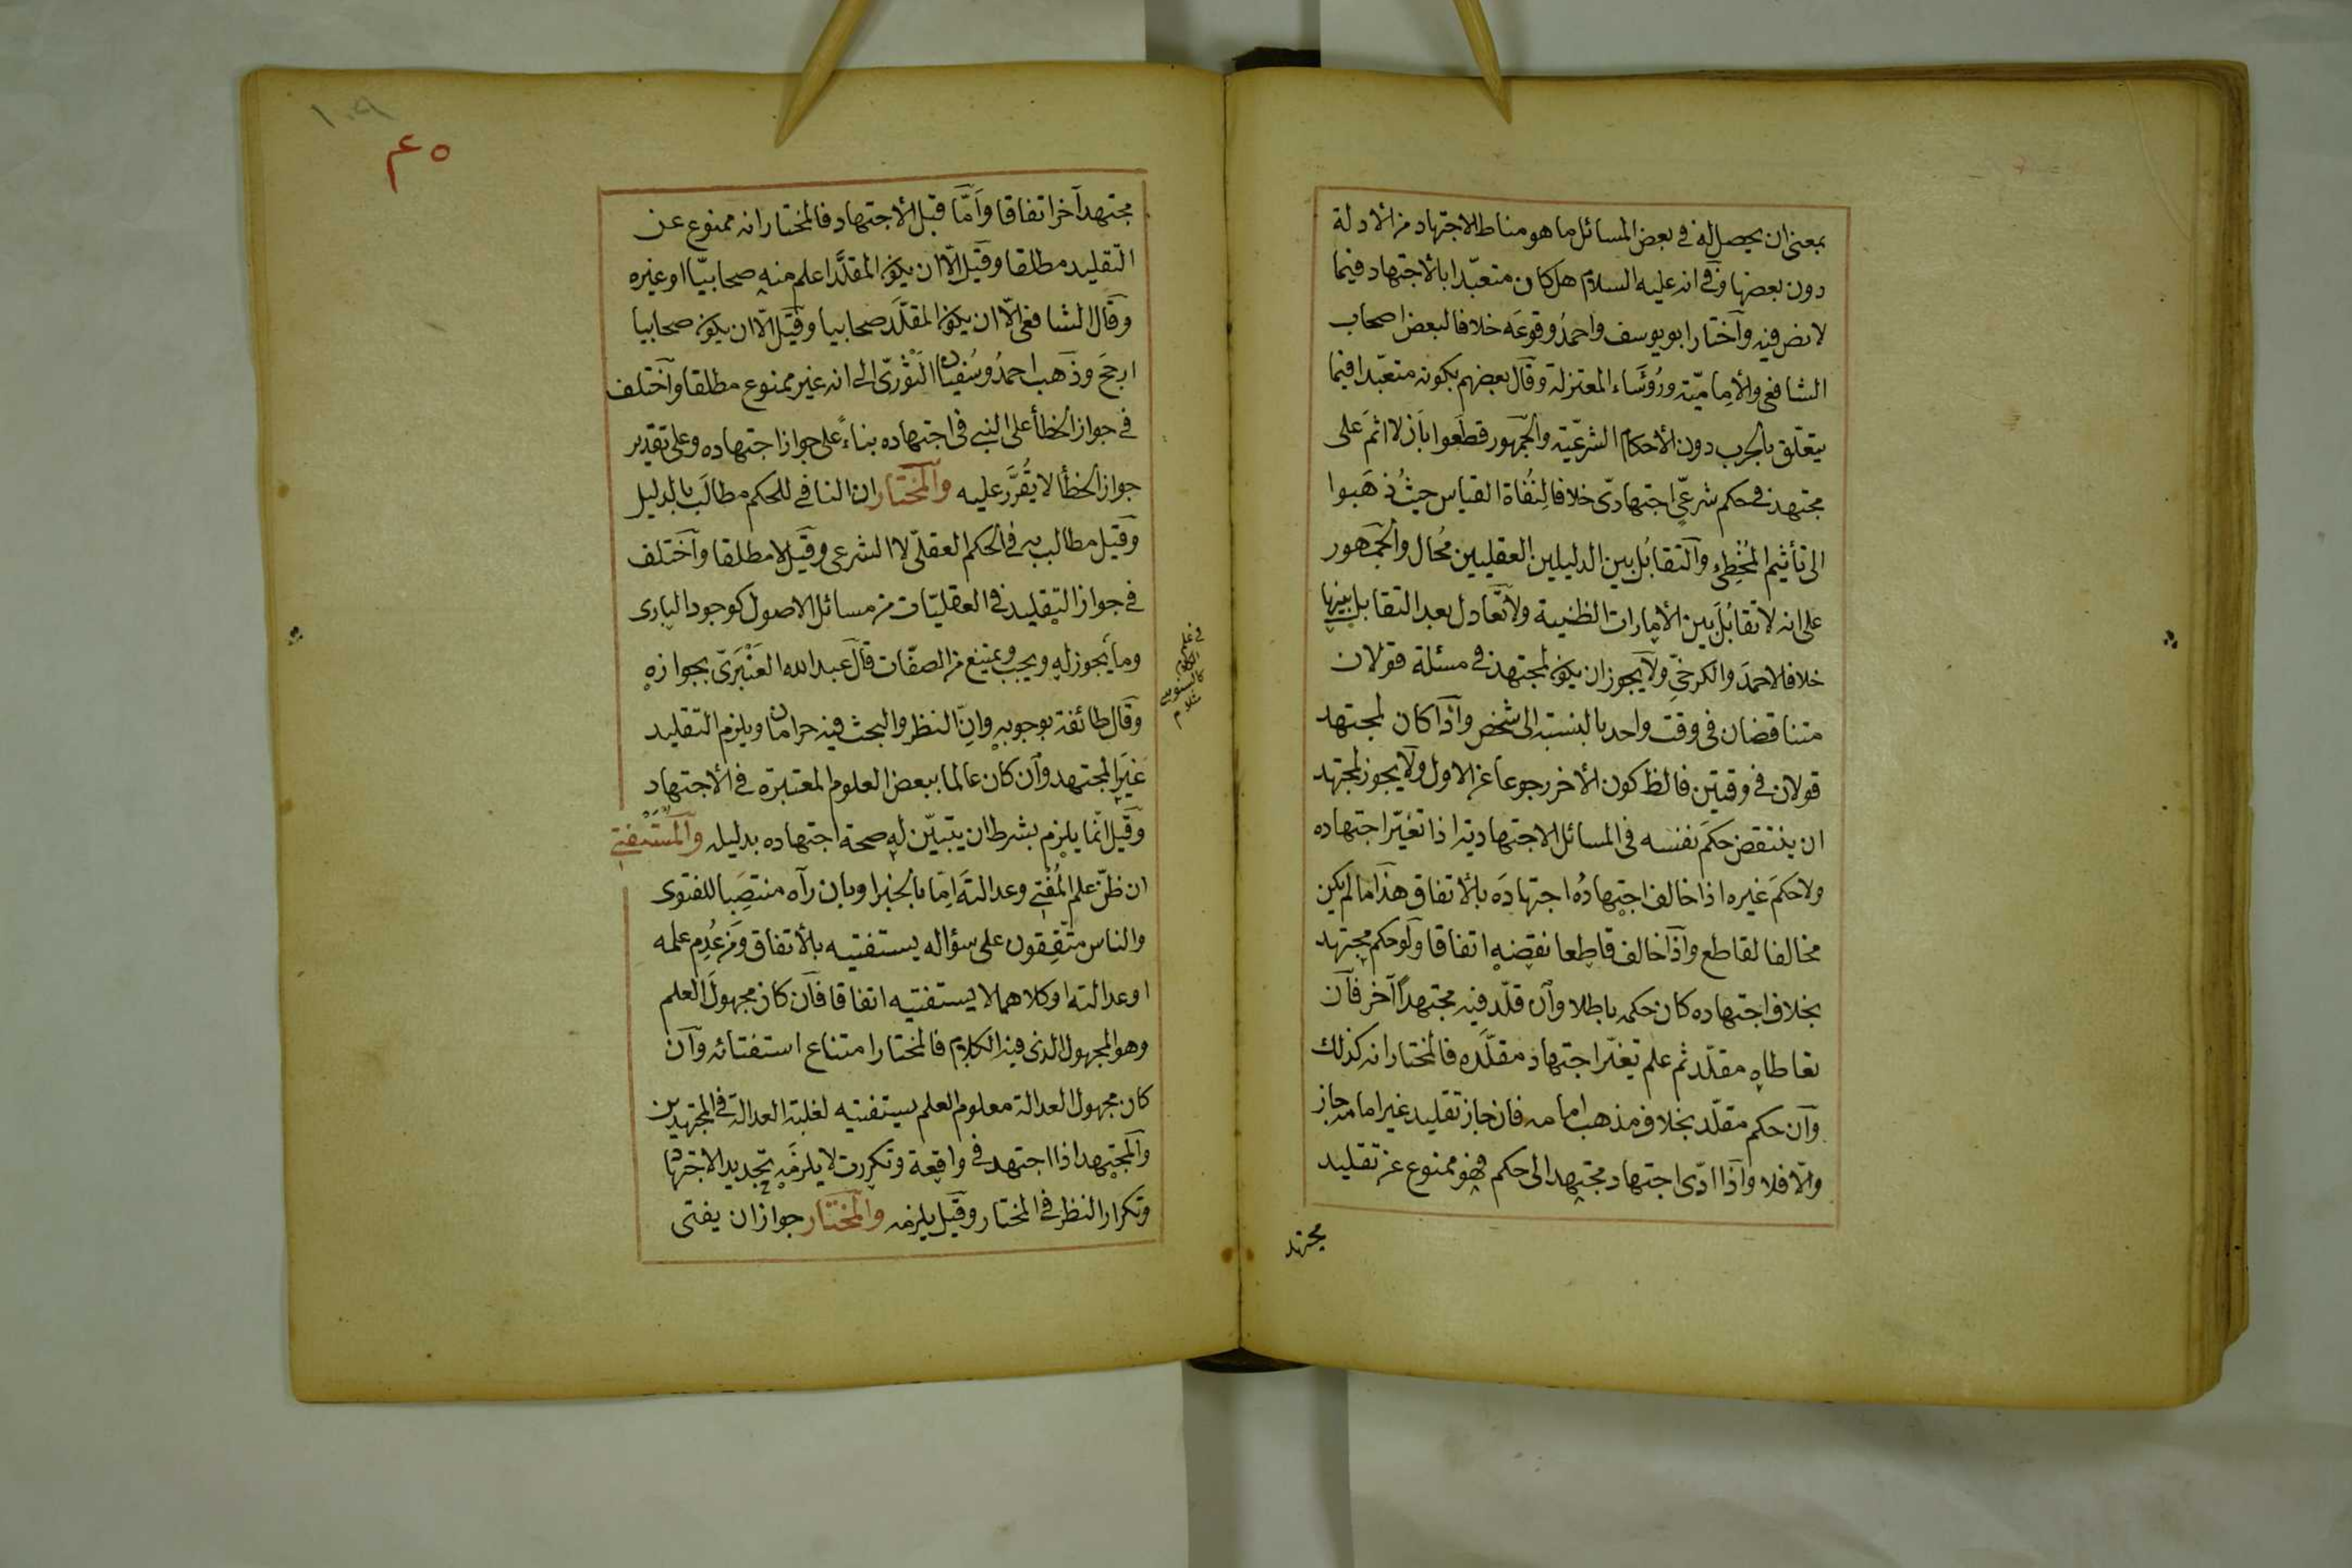 بمعنى ان يحصل له في بعض المسائل ما هو مناط الاجتهاد من الادلة
دون بعضها وفي انه عليه السلام هل كان متعبّدا بالأجتهاد فيما
لا نص فيه وآختار ابو يوسف واحمدُ وقوعَه خلافا لبعض اصحاب
الشافعي والأمِاميّته ورُؤسَاء المعتزلة وقال بعضهم بكونه متعبّدا فيما
يتعّلق بالحرب دون الأحكام الشرعّيته والجّمهور قطَعوا باَن لا اثمَ على
مجتهد في حكم شرعيّ اجتهادىّ خلافا لِنُفُاة القياس حيثُ ذهَبوا
الى تأثيم المُخْطِئ وآلتقابُل بين الدليلين العقليين مُحال والجَمهور
على انه لا تَقابُلَ بين الأمارات الظنية ولا تَعادل بعد التقابل بينها
خلافا لاحمدَ والكرخيِّ ولاَ يجوز ان يكون لمجتهد في مسئلة قولان
متناقضان في وقت واحد بالنسبة الى شخص وآذا كان لمجتهد
قولان في وقتين فالظ كون الأخر رجوعا عن الاول ولاَ يجوز لمجتهد
ان ينتقض حكمَ نفسه في المسائل الاجتهادية اذا تغيّر اجتهاده
ولا حكمَ غيره اذا خالف اجتهادُه اجتهادَه بالأتفاق هذَا ما لم يكن
مخالفا لقاطع وآذَا خالف قاطِعا نقضه اتفاقا ولَو حكم مجتهد
بخلاف اجتهاده كان حكمه باطلا وآن قلّد فيه مجتهداً آخر فآن
تعاطاه مقلّد ثم علم تغيّر اجتهاد مقلَّده فالمختار انه كذلك
وآن حكم مقلّد بخلاف مذهب امامه فان جاز تقليد غير امامه جاز
والّا فلا وآذَا ادّى اجتهاد مجتهد الى حكم فهو ممنوع عن تقليد
مجتهد
١٠٩
٤٥م
مجتهد آخر اتفاقا وآمّا قبل الأجتهاد فالمختار انه ممنوع عن
التّقليد مطلقا وقيَل الّا ان يكون المقلَّد اعلم منه صحابيّا او غيره
وقَال الشافعي الّا ان يكون المقلَّد صحابيا وقيَل الّا ان يكون صحابيا
ارجحَ وذَهب احمدُ وسُفيان الثَوْرىّ الى انه غير ممنوع مطلقا وآختلف
في جواز الخطأ على النبي في اجتهاده بناءً على جواز اجتهاده وعلى تقدير
جواز الخطأ لا يُقَرَّر عليه والمختار ان النافي للحكم مطالَب بالدليل
وقيَل مطالب به في الحكم العقلّى لا الشرعى وقيَل لا مطلقا وآختلف
في جواز التقليد في العقليّات من مسائل الاصول كوجود البارى
وما يجوز له ويجب ويمتنع من الصفّات قَال عبد الله العَنْبَرَىّ بجوازه
وقال طائفة بوجوبه وانّ النظر والبحث فيه حرامان ويلزم التّقليد
غيرَ المجتهد وآن كان عالما ببعض العلوم المعتبرّة في الأجتهاد
وقيَل انمّا يلزم بشرط ان يتبيّن له صحة اجتهاده بدليله والمستفتي
ان ظنّ علم المُفْتي وعدالتَه امِّا بالخبر او بان رآه منتصِبا للفتوى
والناس متّفِقون على سؤاله يستفتيه بالأتفاق ومَن عُدِم علمه
او عدالته او كلاهما لا يستفتيه اتفاقا فآن كان مجهولَ العلم
وهو المجهول الذى فيه الكلام فالمختار امتناع استفتائه وآن
كان مجهول العدالة معلوم العلم يستفتيه لغلبة العدالة في المجتهدين
وآلمجتهد اذا اجتهد في واقعة وتكررت لا يلزَمه تجديد الاجتهاد
وتكرار النظر في المختار وقيَل يلزمه والمختار جواز ان يفتى
في علم
الكلام
كالسنوسي